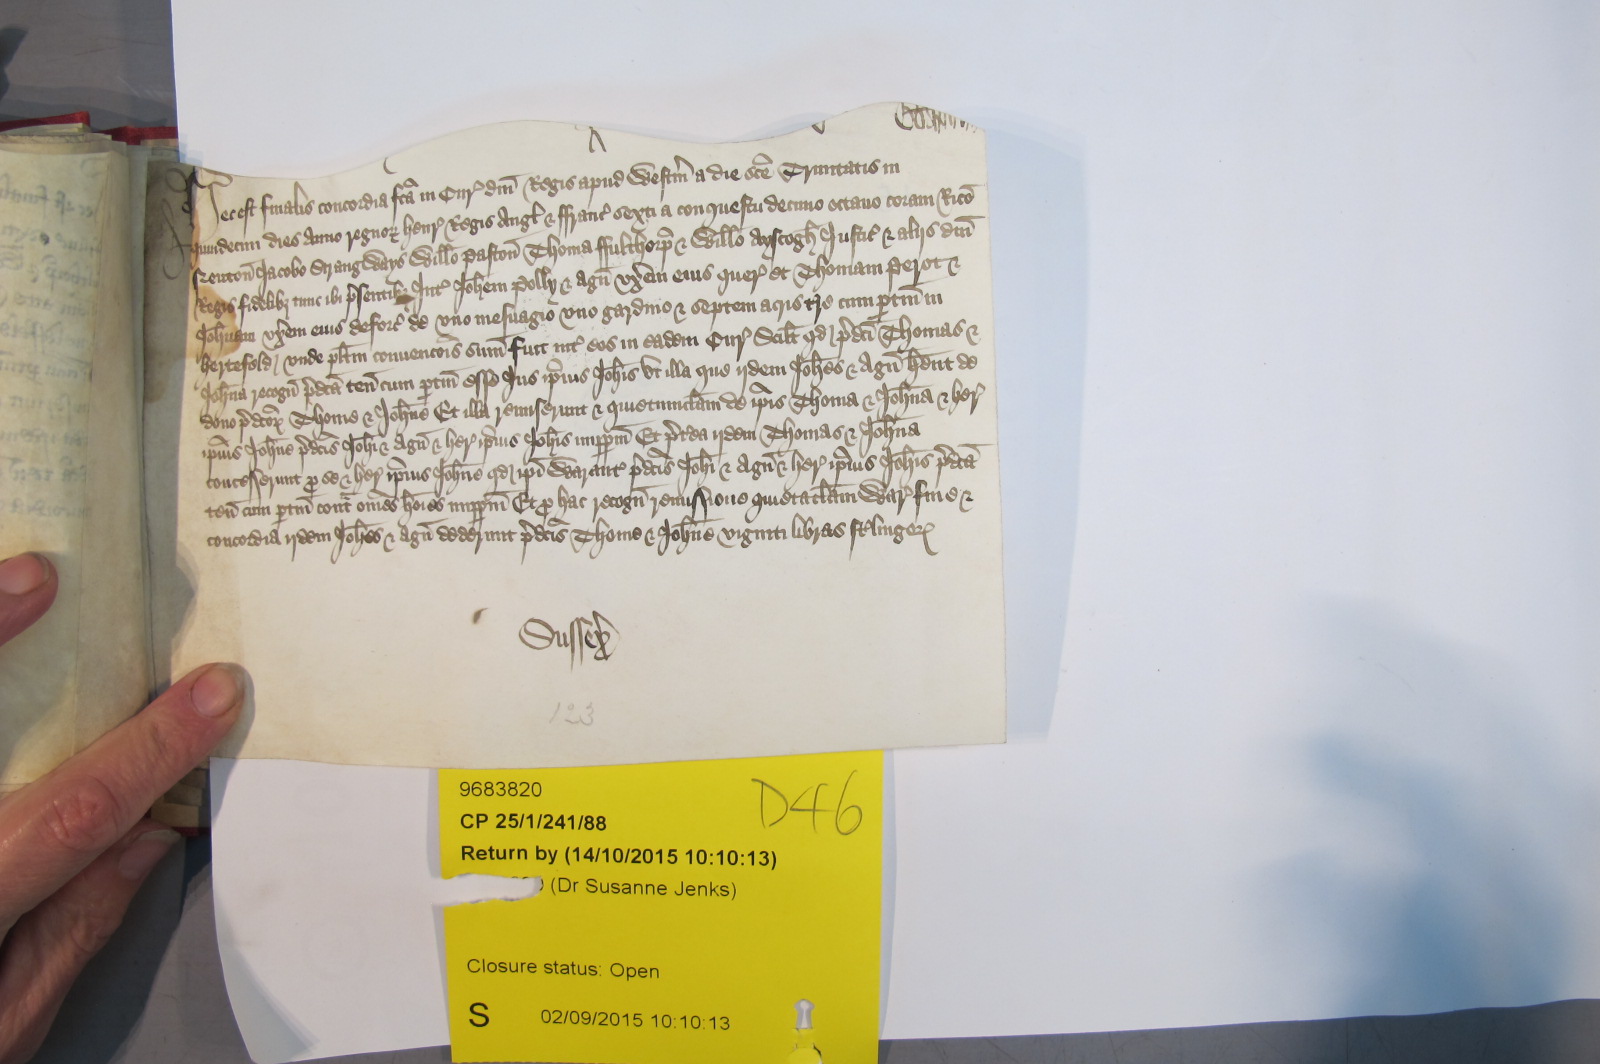 Hec est finalis concordia fca in Cur dni Regis apud Westm a die sce Trinitatis in
quindecim dies Anno regnor Henr Regis Angl & Ffranc sexti a conquestu decimo octavo coram Rico
Neuton Jacobo Strangways Willo Paston Thoma Ffulthorp & Willo Ayscogh Justic & alijs dni
Regis fidelibz tunc ibi psentibz Int Johem Polly & Agn vxem eius quer et Thomam Perot &
Johnam vxem eius deforc de vno mesuagio vno gardino & septem acris tre cum ptin in
Hertefeld vnde plitm convencois sum fuit int eos in eadem Cur Scilt qd pdci Thomas &
Johna recogn pdca ten cum ptin esse Jus ipius Johis vt illa que ijdem Johes & Agn hent de
dono pdcor Thome & Johne Et illa remiserunt & quietumclam de ipis Thoma & Johna & her
ipius Johne pdcis Johi & Agn & her ipius Johis imppm Et pterea ijdem Thomas & Johna
concesserunt p se & her ipius Johne qd ipi Warant pdcis Johi & Agn & her ipius Johis pdca
ten cum ptin cont omes hoies imppm Et p hac recogn remissione quietaclam War fine &
concordia ijdem Johes & Agn dederunt pdcis Thome & Johne viginti libras strlingor
Sussex
123
9683820
D46
CP 25/1/241/88
Return by (14/10/2015 10:10:13)
(Dr Susanne Jenks)
Closure status: Open
S 02/09/2015 10:10:13